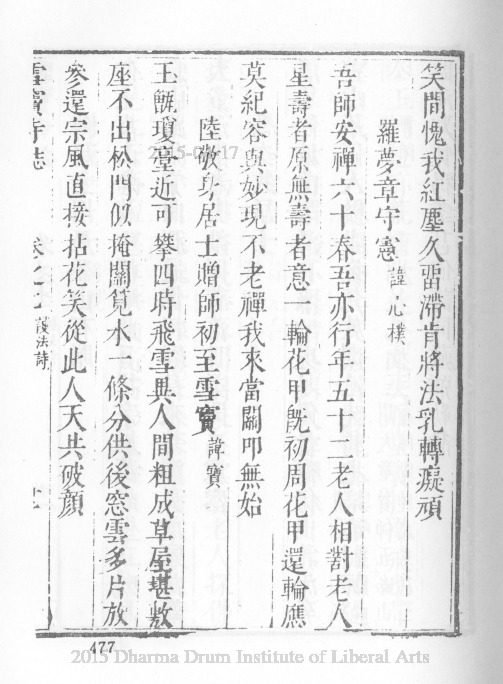 笑間愧我紅塵久畱滯肯將法乳轉癡頑
羅夢章守憲 諱心樸
吾師安禪六十春吾亦行年五十二老人相對老人
星壽者原無壽者意一輪花甲旣初周花甲還輪應
莫紀容與妙現不老禪我來當關叩無始
陸敬身居士贈師初至雪竇 諱寶
玉甌瓊臺近可攀四時飛雪異人間粗成草屋堪敷
座不出松門似掩關筧水一條分供後窓雲多片放
參還宗風直接拈花笑從此人天共破顏
雪竇寺誌 卷之九 護法詩
477
2015 Dharma Drum Institute of Liberal Arts